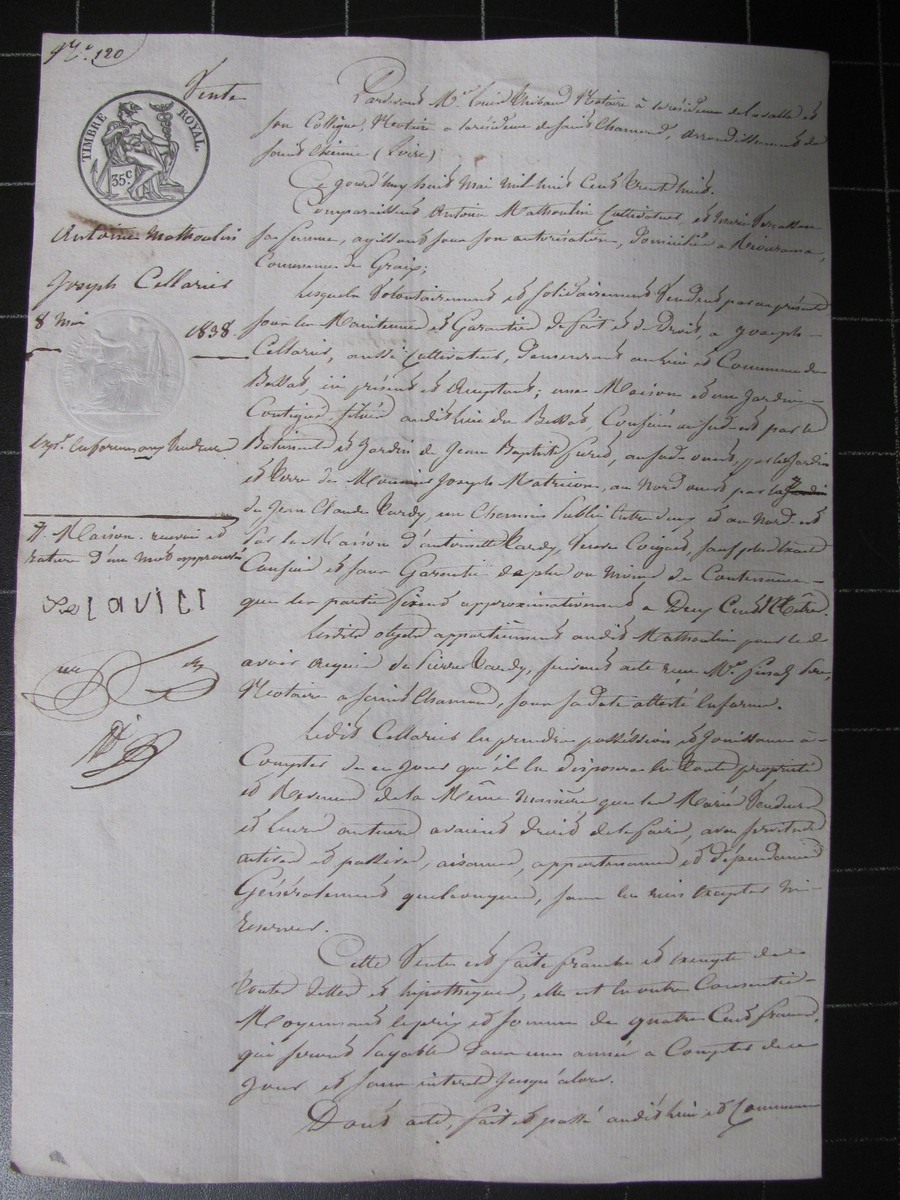 N.° 120
Vente
TIMBRE ROYAL.
35c
Antoine Mathoulin
Joseph Cellarier
8 Mai 1838.
exp.
Maison renvoi et
rature d'un mot approuvés
Pardevant M.e Louis Thibaud Notaire à la résidence de Lavalla et
son Collègue, Notaire a la résidence de Saint Chamond, arrondissement de
Saint Etienne (Loire)
Ce jourd'huy huit Mai mil huit Cent trente huit.
Comparaissent Antoine Mathoulin Cultivateur et Marie
sa femme, agissant sous son autorisation, domiciliés a
Commune de Graix;
Lesquels Volontairement et solidairement Vendent par ces présentes
sous la Maintenue et Garantie de fait et de Droit, a Joseph
Cellarier, aussi Cultivateur, Demeurant au lieu et Commune du
Bessat, ici présent et acceptant; une Maison et un Jardin
Contigus, situés audit lieu du Bessat, Confinés au sud-est par le
Batiment et Jardin de Jean Baptiste, au sud-ouest, par les Jardin
et terre du Meunier Joseph Matricon, au Nord ouest par la Jardin
de Jean Claude Tardy, un Chemin public entre deux et au Nord-est
par la Maison d'antoinette Tardy, Veuve, sauf plus exacts
Confins et sans Garantie de plus ou moins de Contenance
que les parties fixent approximativement a Deux Cents Mètres.
Lesdits objets appartiennent audit Mathoulin pour les
avoir acquis de Pierre Tardy, suivant acte reçu M.e Finaz
Notaire a Saint Chamond, sous sa date attesté en forme.
Ledit Cellarier en prendra possession et Jouissance à
Compter de ce Jour qu'il en disposera en toute propriété
et Revenus de la Même manière que les Mariés Vendeurs
et leurs auteurs avaient droit de le faire, avec servitudes
actives et passives, aisances, appartenances et dépendances
Généralement quelconques, sans en rien excepter ni
réserver.
Cette Vente est faite franche et exempte de
toutes dettes et hipothèques, elle est en outre Consentie
Moyennant le prix et somme de quatre Cents francs,
qui seront payables dans une année a Compter de ce
Jour et sans interet jusqu'alors.
Dont acte, fait et passé audit lieu et Commune